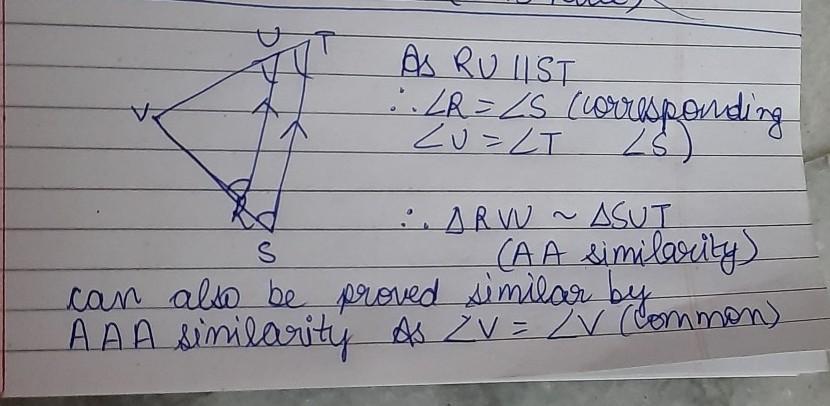 U T
As RU || ST
V
∴ ∠R = ∠S (corresponding
∠U = ∠T ∠S)
R
∴ ΔRVU ~ ΔSVT
S
(AA similarity)
can also be proved similar by
AAA similarity As ∠V = ∠V (common)